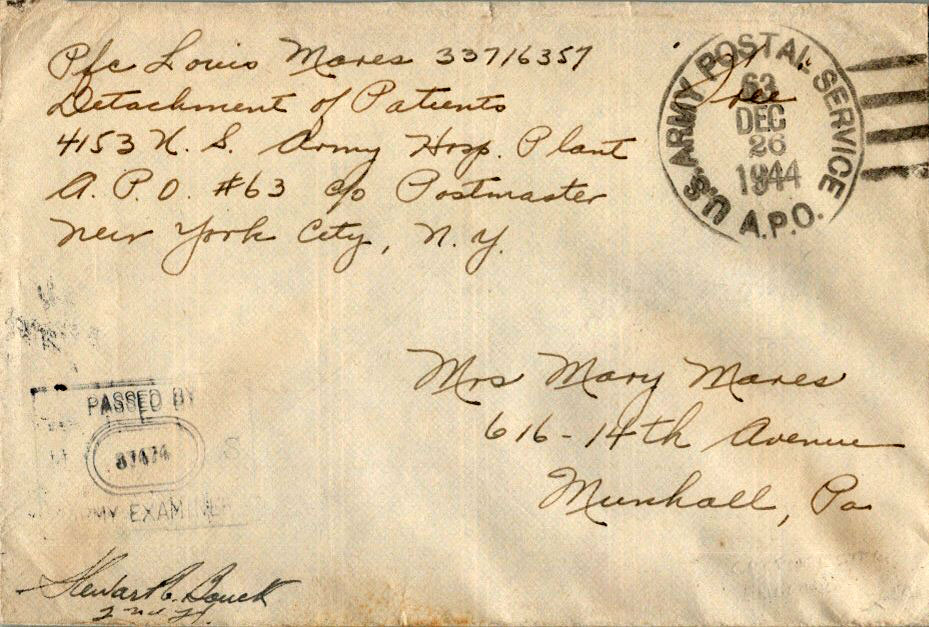 Pfc Louis Mares 33716357
Detachment of Patients
4153 U. S. Army Hosp. Plant
A. P. O. #63 c/o Postmaster
New York City, N. Y.
Free
U.S. ARMY POSTAL SERVICE
63
DEC
26
1944
A.P.O.
Mrs Mary Mares
616-14th Avenue
Munhall, Pa
PASSED BY
S
ARMY EXAMINER
2nd Lt.